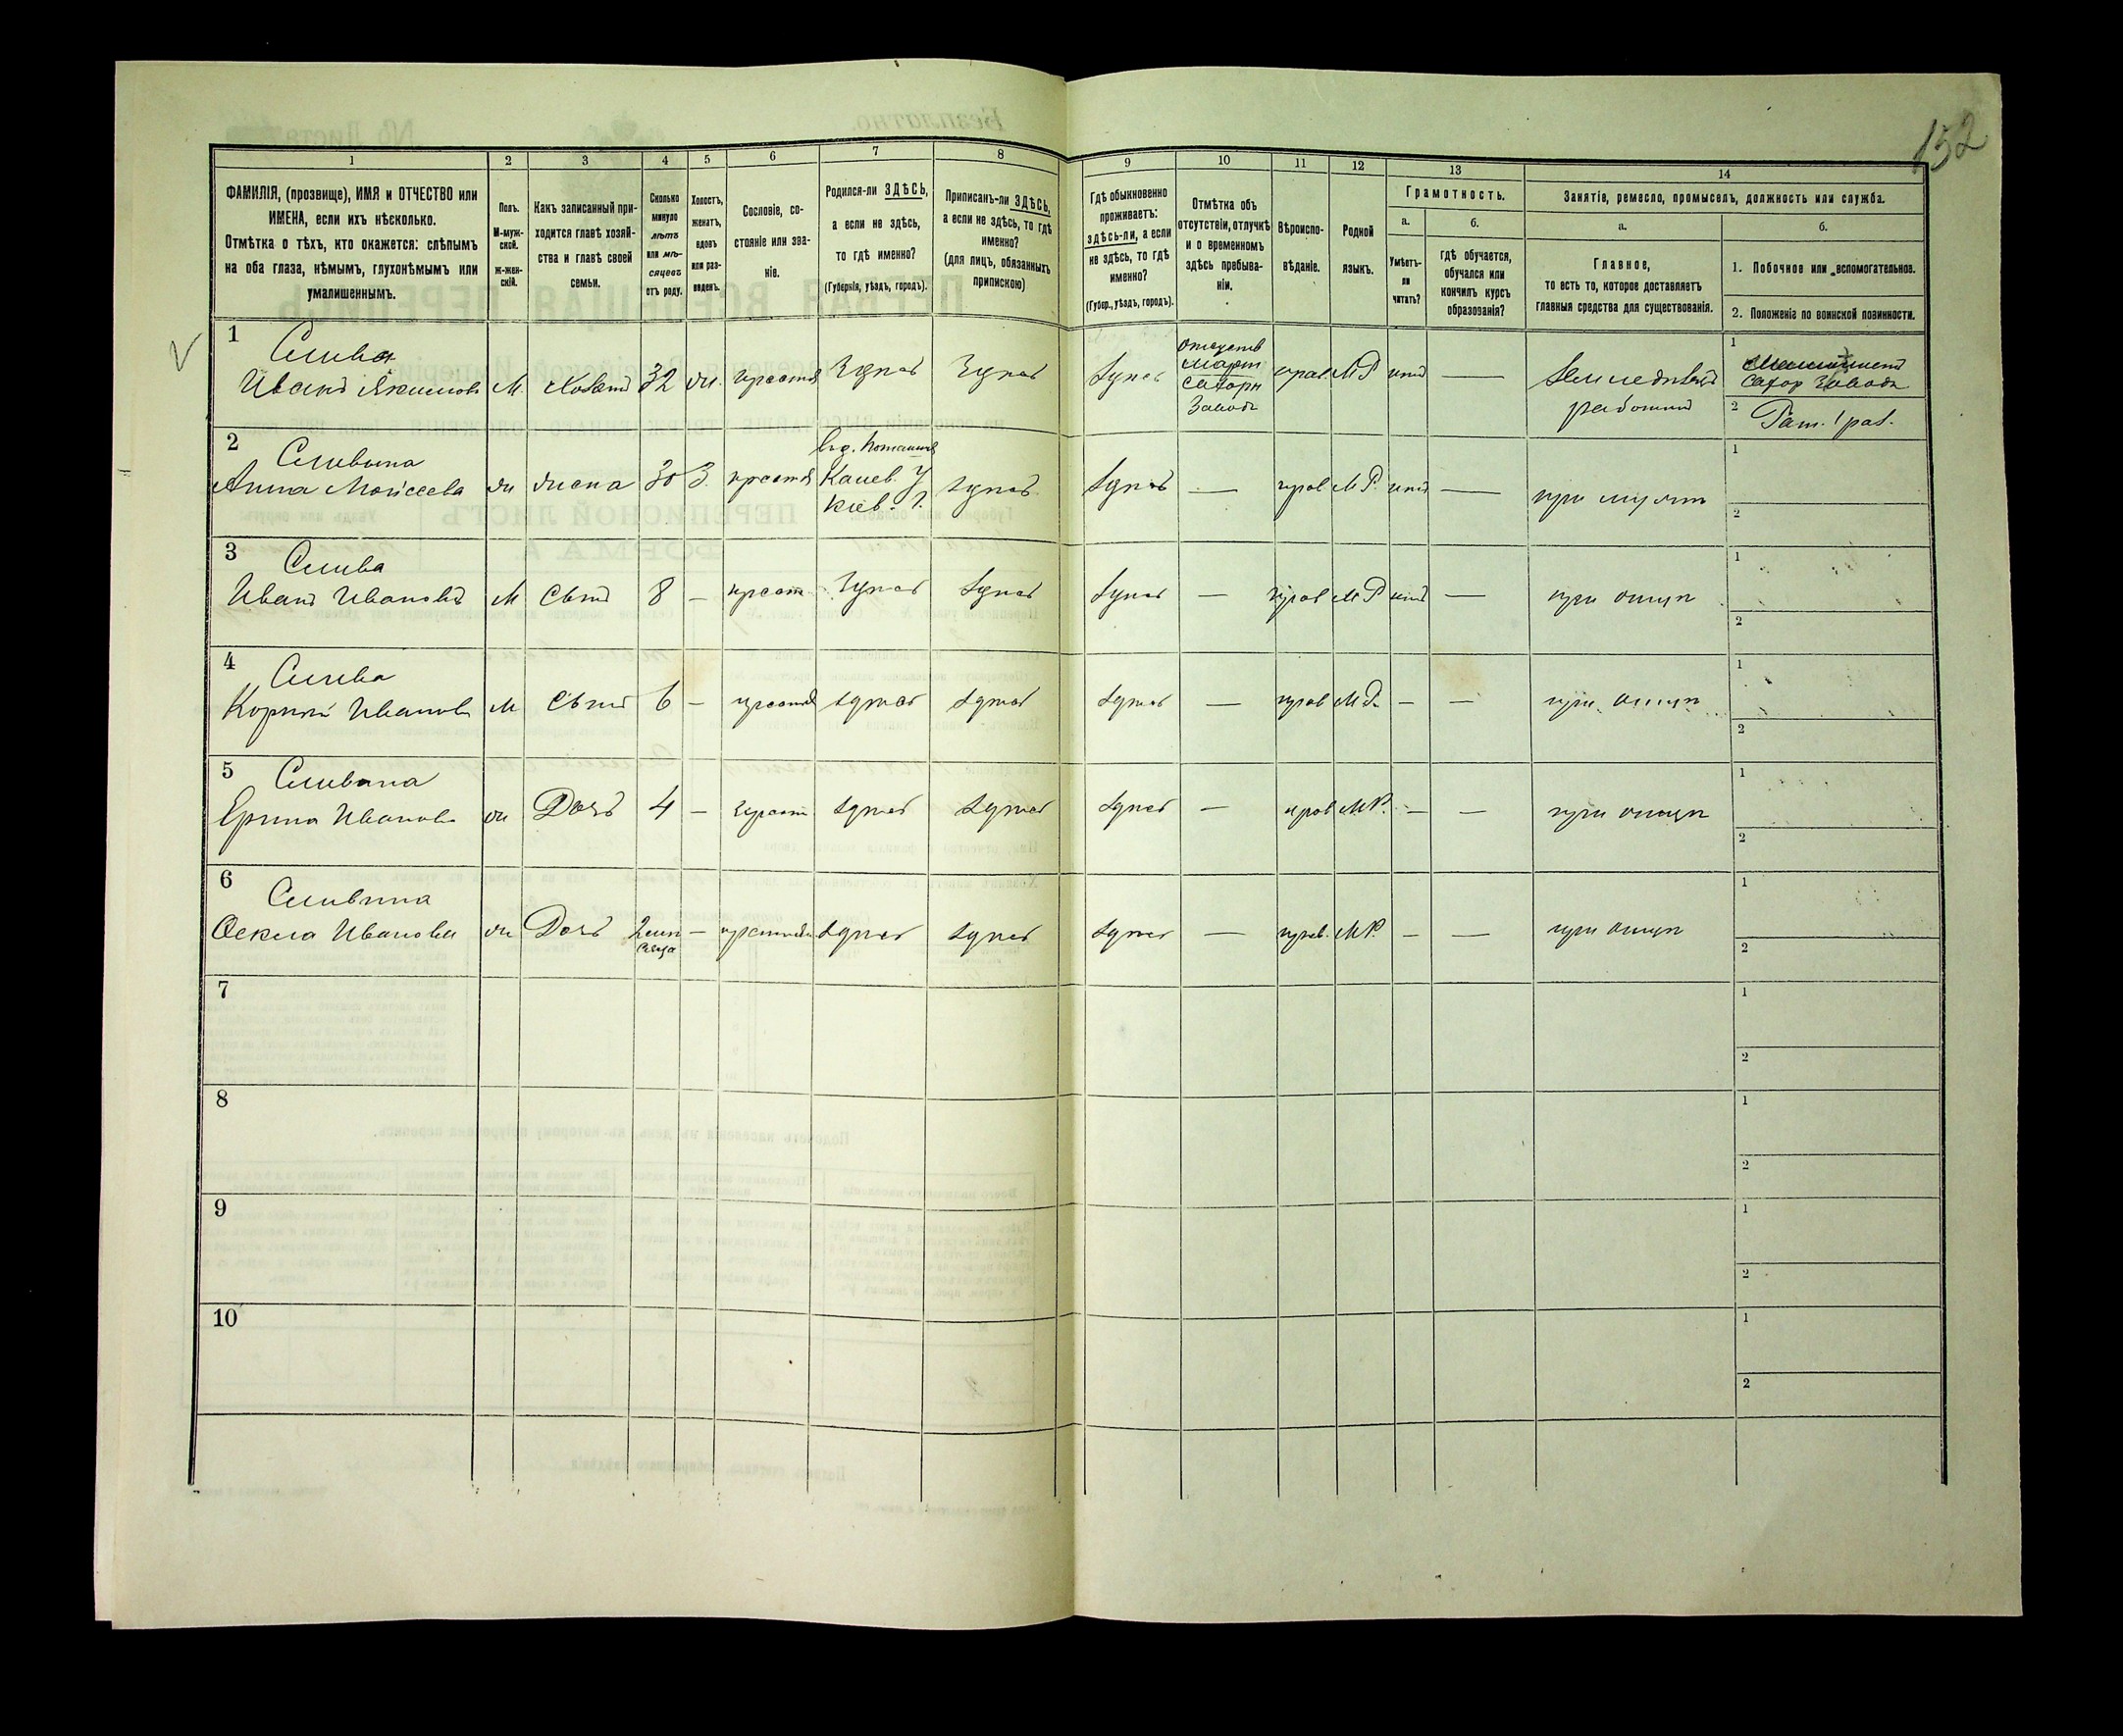 152
1
2
3
4
5
6
7
8
9
10
11
12
13
14
ФАМИЛІЯ, (прозвище), ИМЯ и ОТЧЕСТВО или
ИМЕНА, если ихъ нѣсколько.
Отмѣтка о тѣхъ, кто окажется: слѣпымъ
на оба глаза, нѣмымъ, глухонѣмымъ или
умалишеннымъ.
Полъ.
М-муж-
ской.
Ж-жен-
скій.
Какъ записанный при-
ходится главѣ хозяй-
ства и главѣ своей
семьи.
Сколько
минуло
лѣтъ
или мѣ-
сяцевъ
отъ роду.
Холостъ,
женатъ,
вдовъ
или раз-
веденъ.
Сословіе, со-
стояніе или зва-
ніе.
Родился-ли ЗДѢСЬ,
а если не здѣсь,
то гдѣ именно?
(Губернія, уѣздъ, городъ).
Приписанъ-ли ЗДѢСЬ,
а если не здѣсь, то гдѣ
именно?
(для лицъ, обязанныхъ
припискою)
Гдѣ обыкновенно
проживаетъ:
здѣсь-ли, а если
не здѣсь, то гдѣ
именно?
(Губер., уѣздъ, городъ).
Отмѣтка объ
отсутствіи, отлучкѣ
и о временномъ
здѣсь пребыва-
ніи.
Вѣроиспо-
вѣданіе.
Родной
языкъ.
Грамотность.
а.
Умѣетъ-
ли
читать?
б.
гдѣ обучается,
обучался или
кончилъ курсъ
образованія?
Занятіе, ремесло, промыселъ, должность или служба.
а.
Главное,
то есть то, которое доставляетъ
главныя средства для существованія.
б.
1. Побочное или вспомогательное.
2. Положеніе по воинской повинности.
1
Слива
Иванъ Якимовъ М. Хозяинъ 32 ж. крестья Здѣсь Здѣсь Здѣсь
сахарн
Заводъ
прав. М Р нѣтъ —
работникъ
1
сахар Заводъ
2
2
Сливина
Анна Мойсеева ж жена 30 З. крестья
Канев. У
Кіев. Г.
здѣсь здѣсь — прав М Р. нѣтъ — при мужѣ
1
2
3
Слива
Иванъ Ивановъ М Сынъ 8 — крест. Здѣсь здѣсь здѣсь — прав М Р нѣтъ — при отцѣ
1
2
4
Слива
Корній Ивановъ М Сынъ 6 — крестья здѣсь здѣсь здѣсь — прав М Р. — — при отцѣ
1
2
5
Сливина
Ерина Иванова ж Дочь 4 — крест здѣсь здѣсь здѣсь — прав М.Р. — — при отцѣ
1
2
6
Сливина
Ѳекла Иванова ж Дочь 2 мѣ
сяца
— здѣсь здѣсь здѣсь — прав. М Р. — — при отцѣ
1
2
7
1
2
8
1
2
9
1
2
10
1
2